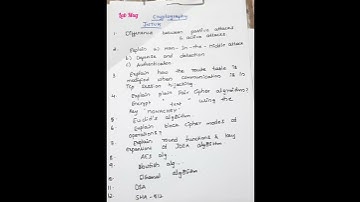 Lab Mug
Cryptography
INTUK
1. Difference between passive attacks
& active attacks.
2. Explain a) Man-in-the-Middle attack
b) Defense and detection
c) Authentication
3. Explain how the route table is
modified when communication is in
TCP session hijacking
4. Explain plain fair cipher algorithm?
Encrypt using the
key MONARCHY
5. Euclid's algorithm.
6. Explain block cipher modes of
operations?
7. Explain round functions & key
expansions of IDEA algorithm
8. AES alg
9. Blowfish alg...
10. Elgamal algorithm
11. DSA
12. SHA-512